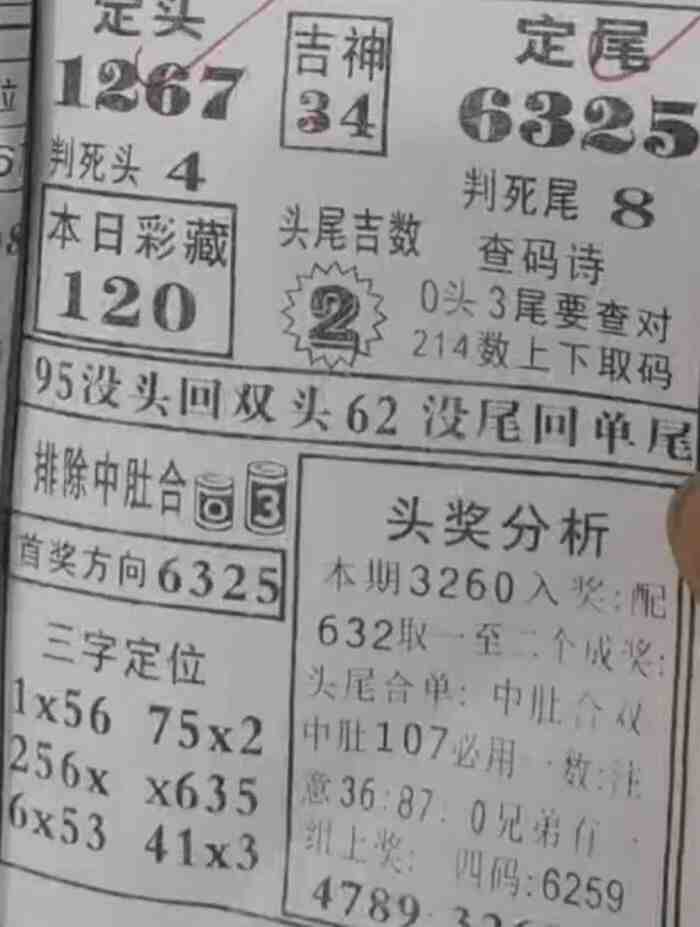 定头
1267
吉神
34
定尾
6325
判死头 4
判死尾 8
本日彩藏
120
头尾吉数
2
查码诗
0头3尾要查对
214数上下取码
95没头回双头62没尾回单尾
排除中肚合03
首奖方向6325
三字定位
1x56 75x2
256x x635
6x53 41x3
头奖分析
本期3260入奖:配
632取一至二个成奖:
头尾合单:中肚合双
中肚107必用一数:注
意36:87:0兄弟有一
组上奖: 四码:6259
4789